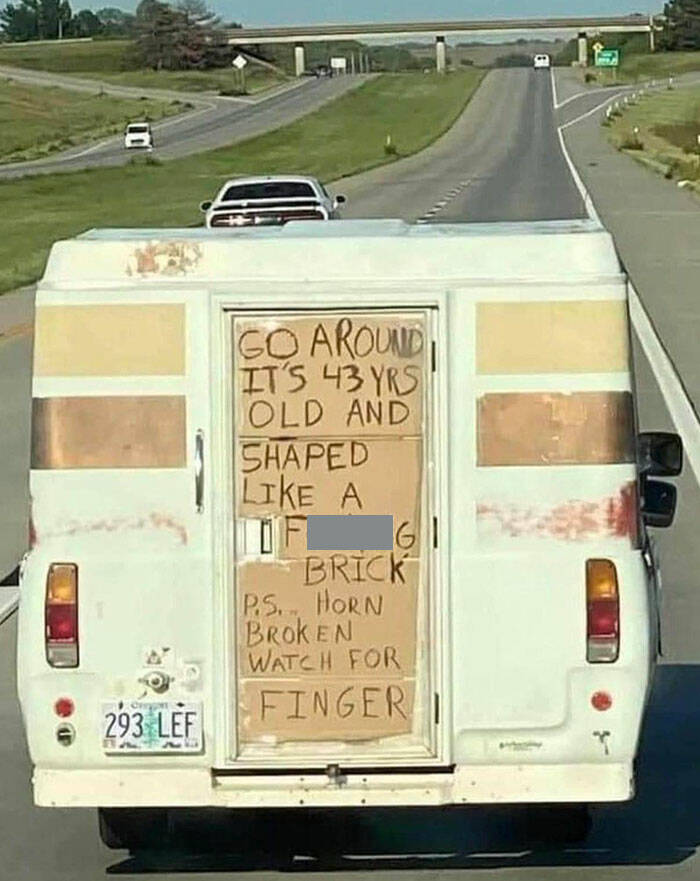 GO AROUND
IT'S 43 YRS
OLD AND
SHAPED
LIKE A
F G
BRICK
P.S... HORN
BROKEN
WATCH FOR
FINGER
293 LEF